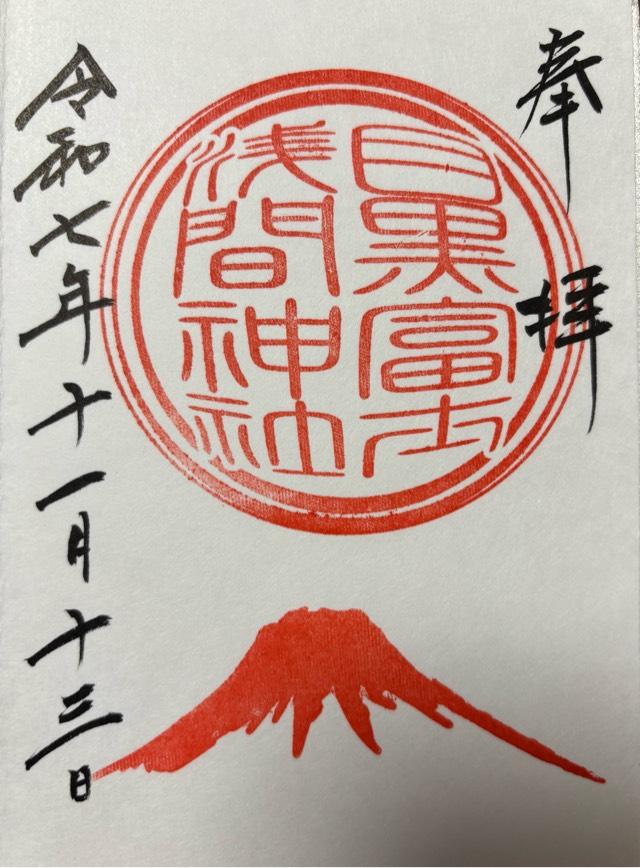 奉拝
目黒富士
浅間神社
令和七年十一月十三日